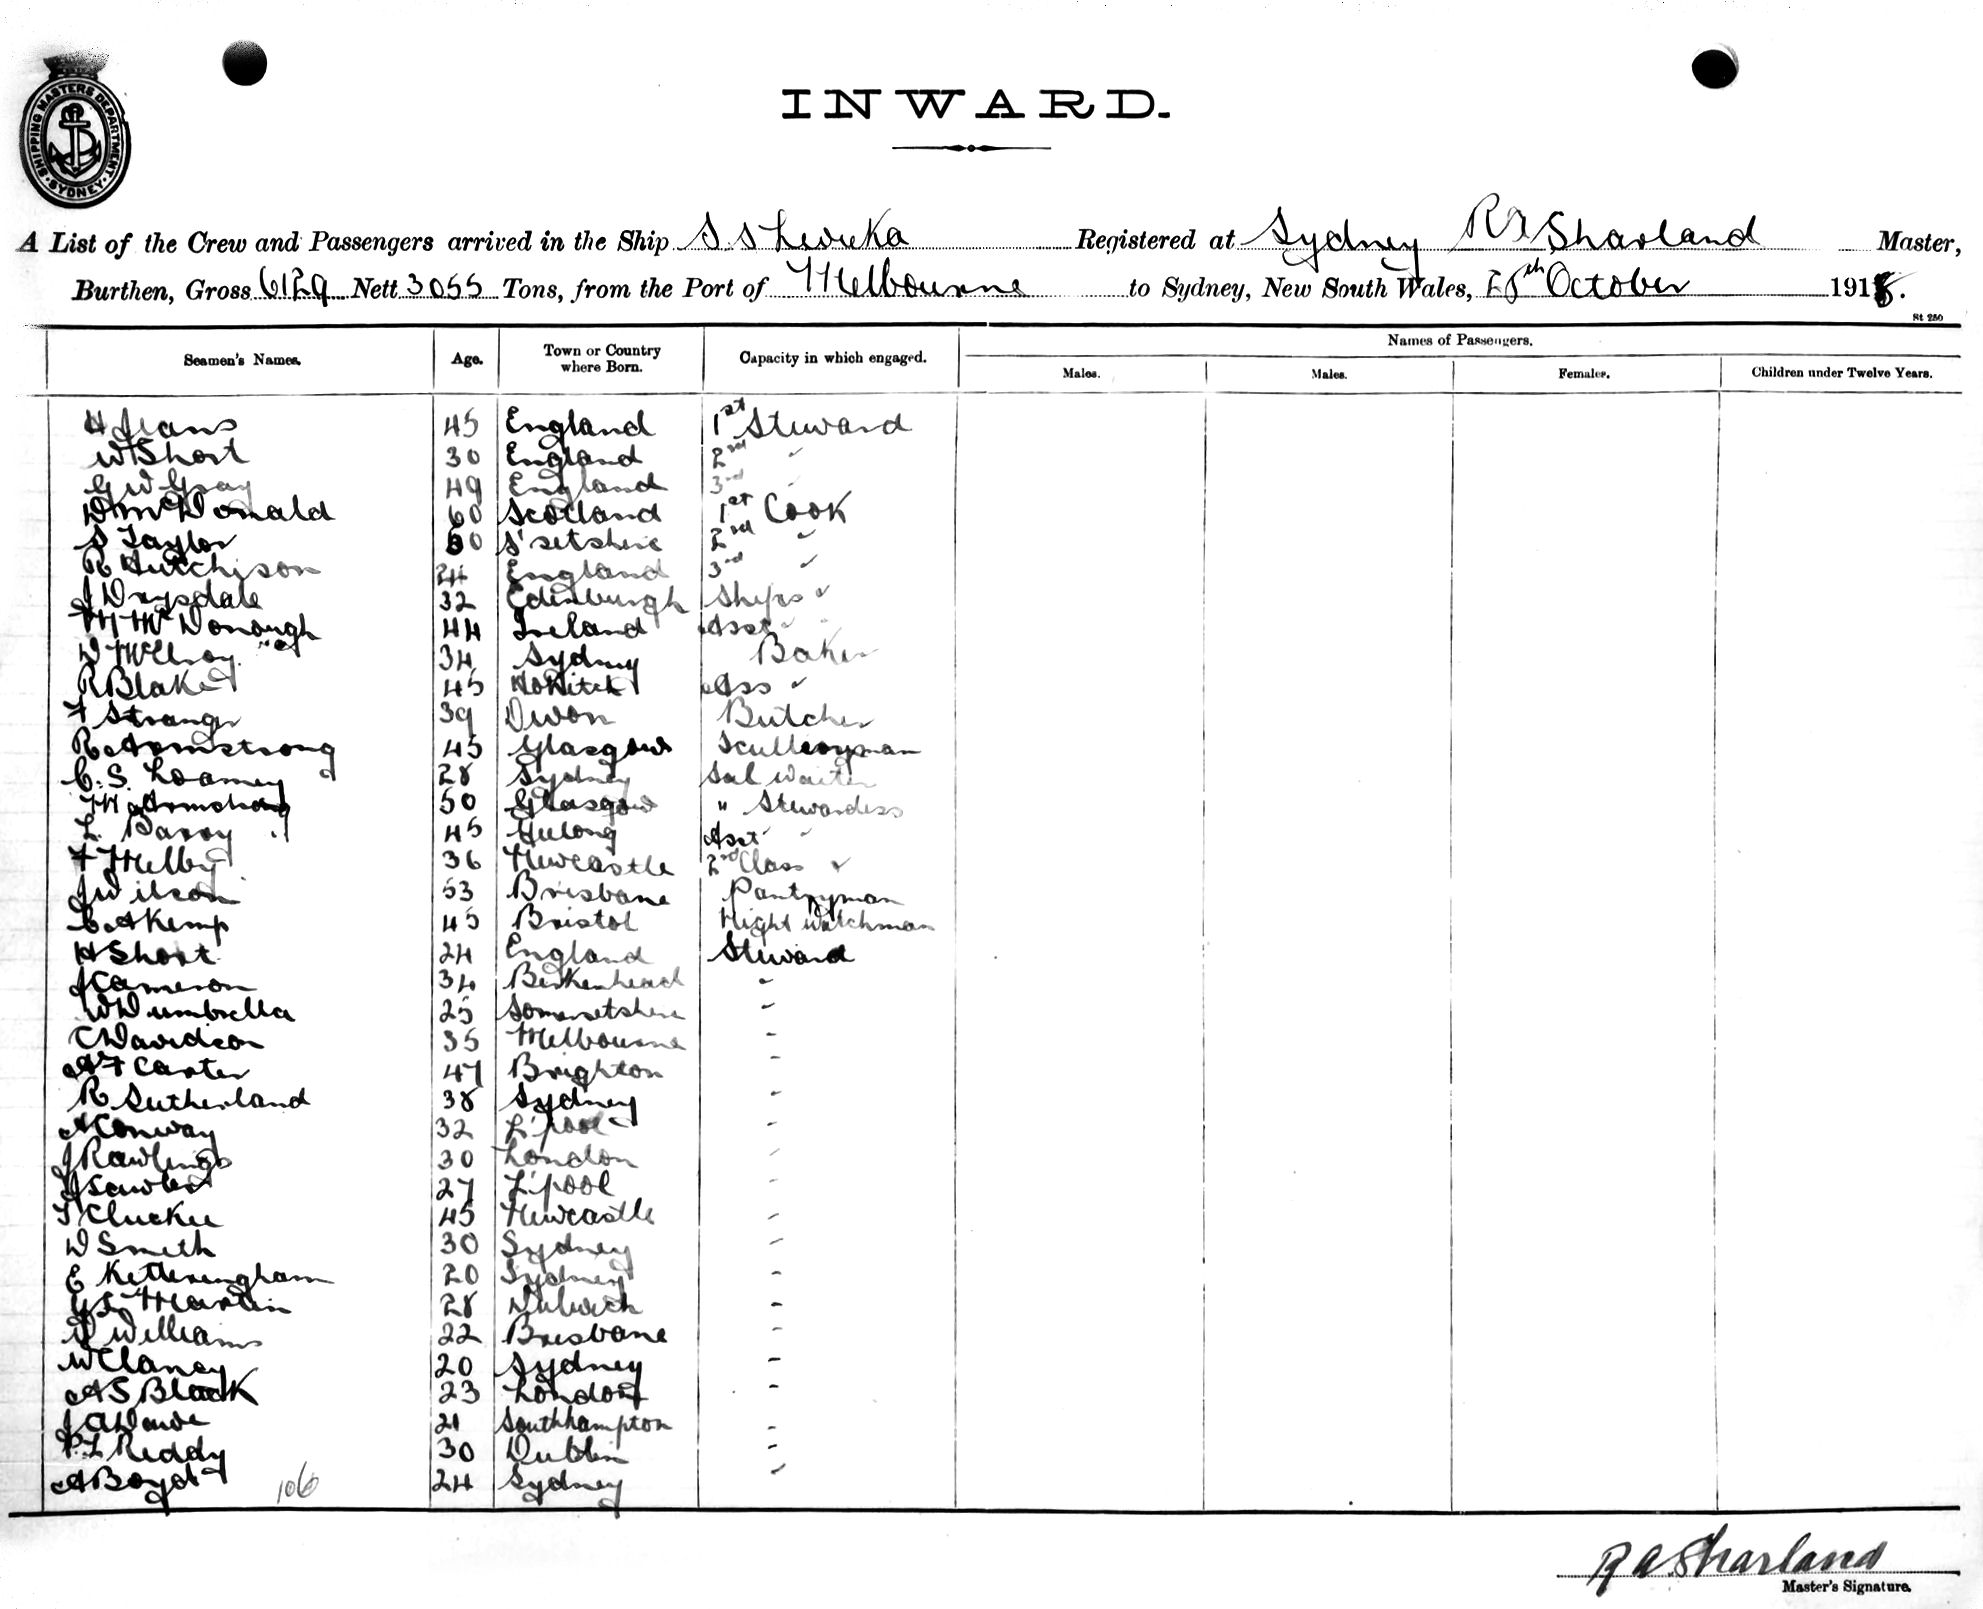 SHIPPING MASTERS DEPARTMENT. SYDNEY
INWARD.
A List of the Crew and Passengers arrived in the Ship S S Levuka Registered at Sydney R A Sharland Master,
Burthen, Gross 6129 Nett 3055 Tons, from the Port of Melbourne to Sydney, New South Wales, 28th October 1918.
St 250
Seamen's Names. Age. Town or Country where Born. Capacity in which engaged. Names of Passengers.
Males. Males. Females. Children under Twelve Years.
H Jeans 45 England 1st Steward
W Short 30 England 2nd "
G W Gray 49 England 3rd "
D McDonald 60 Scotland 1st Cook
S Taylor 50 S'setshire 2nd "
R Hutchison 24 England 3rd "
J Drysdale 32 Edinburgh Ships "
M McDonough 44 Ireland Asst " "
D McElroy 34 Sydney Baker
R Blake 45 Ass "
F Stranger 39 Devon Butcher
R Armstrong 45 Glasgow Sculleryman
C. S. Loamey 28 Sydney Sal Waiter
M Armstrong 50 Glasgow " Stewardess
L. Barry 45 Geelong Asst " "
F Melby 36 Newcastle 2nd Class "
J Wilson 53 Brisbane Pantryman
C A Kemp 45 Bristol Night Watchman
H Short 24 England Steward
J Cameron 34 Birkenhead "
W Dumbrella 25 Somersetshire "
C Davidson 35 Melbourne "
A F Carter 47 Brighton "
R Sutherland 38 Sydney "
A Conway 32 L'pool "
J Rawlings 30 London "
J Sawler 27 L'pool "
T Cluckie 45 Newcastle "
D Smith 30 Sydney "
E Ketteringham 20 Sydney "
G L Martin 28 Dulwich "
D Williams 22 Brisbane "
W Clancy 20 Sydney "
A S Black 23 London "
J A Dawe 21 Southhampton "
P. L Reddy 30 Dublin "
A Boyd 106 24 Sydney "
R A Sharland
Master's Signature.